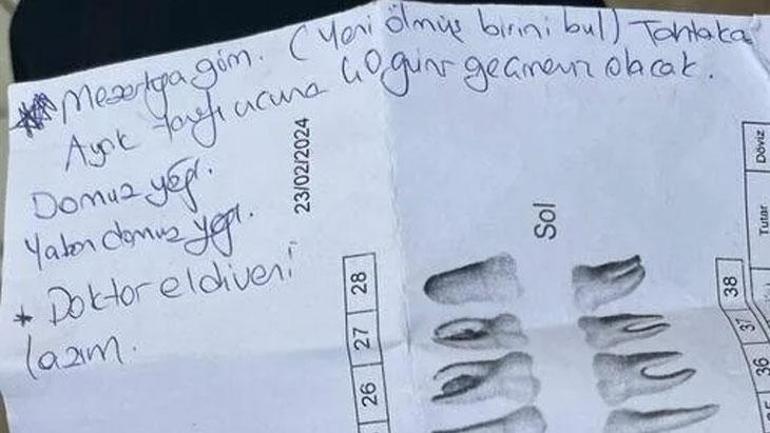 Mezarlığa göm. (Yeni ölmüş birini bul) Tahtaka
Ayak tarafı ucuna 40 günü geçmemiş olacak.
Domuz yağı.
Yaban domuz yağı.
* Doktor eldiveni
lazım.
23/02/2024
Sol
28
27
26
38
37
36
Tutar
Döviz